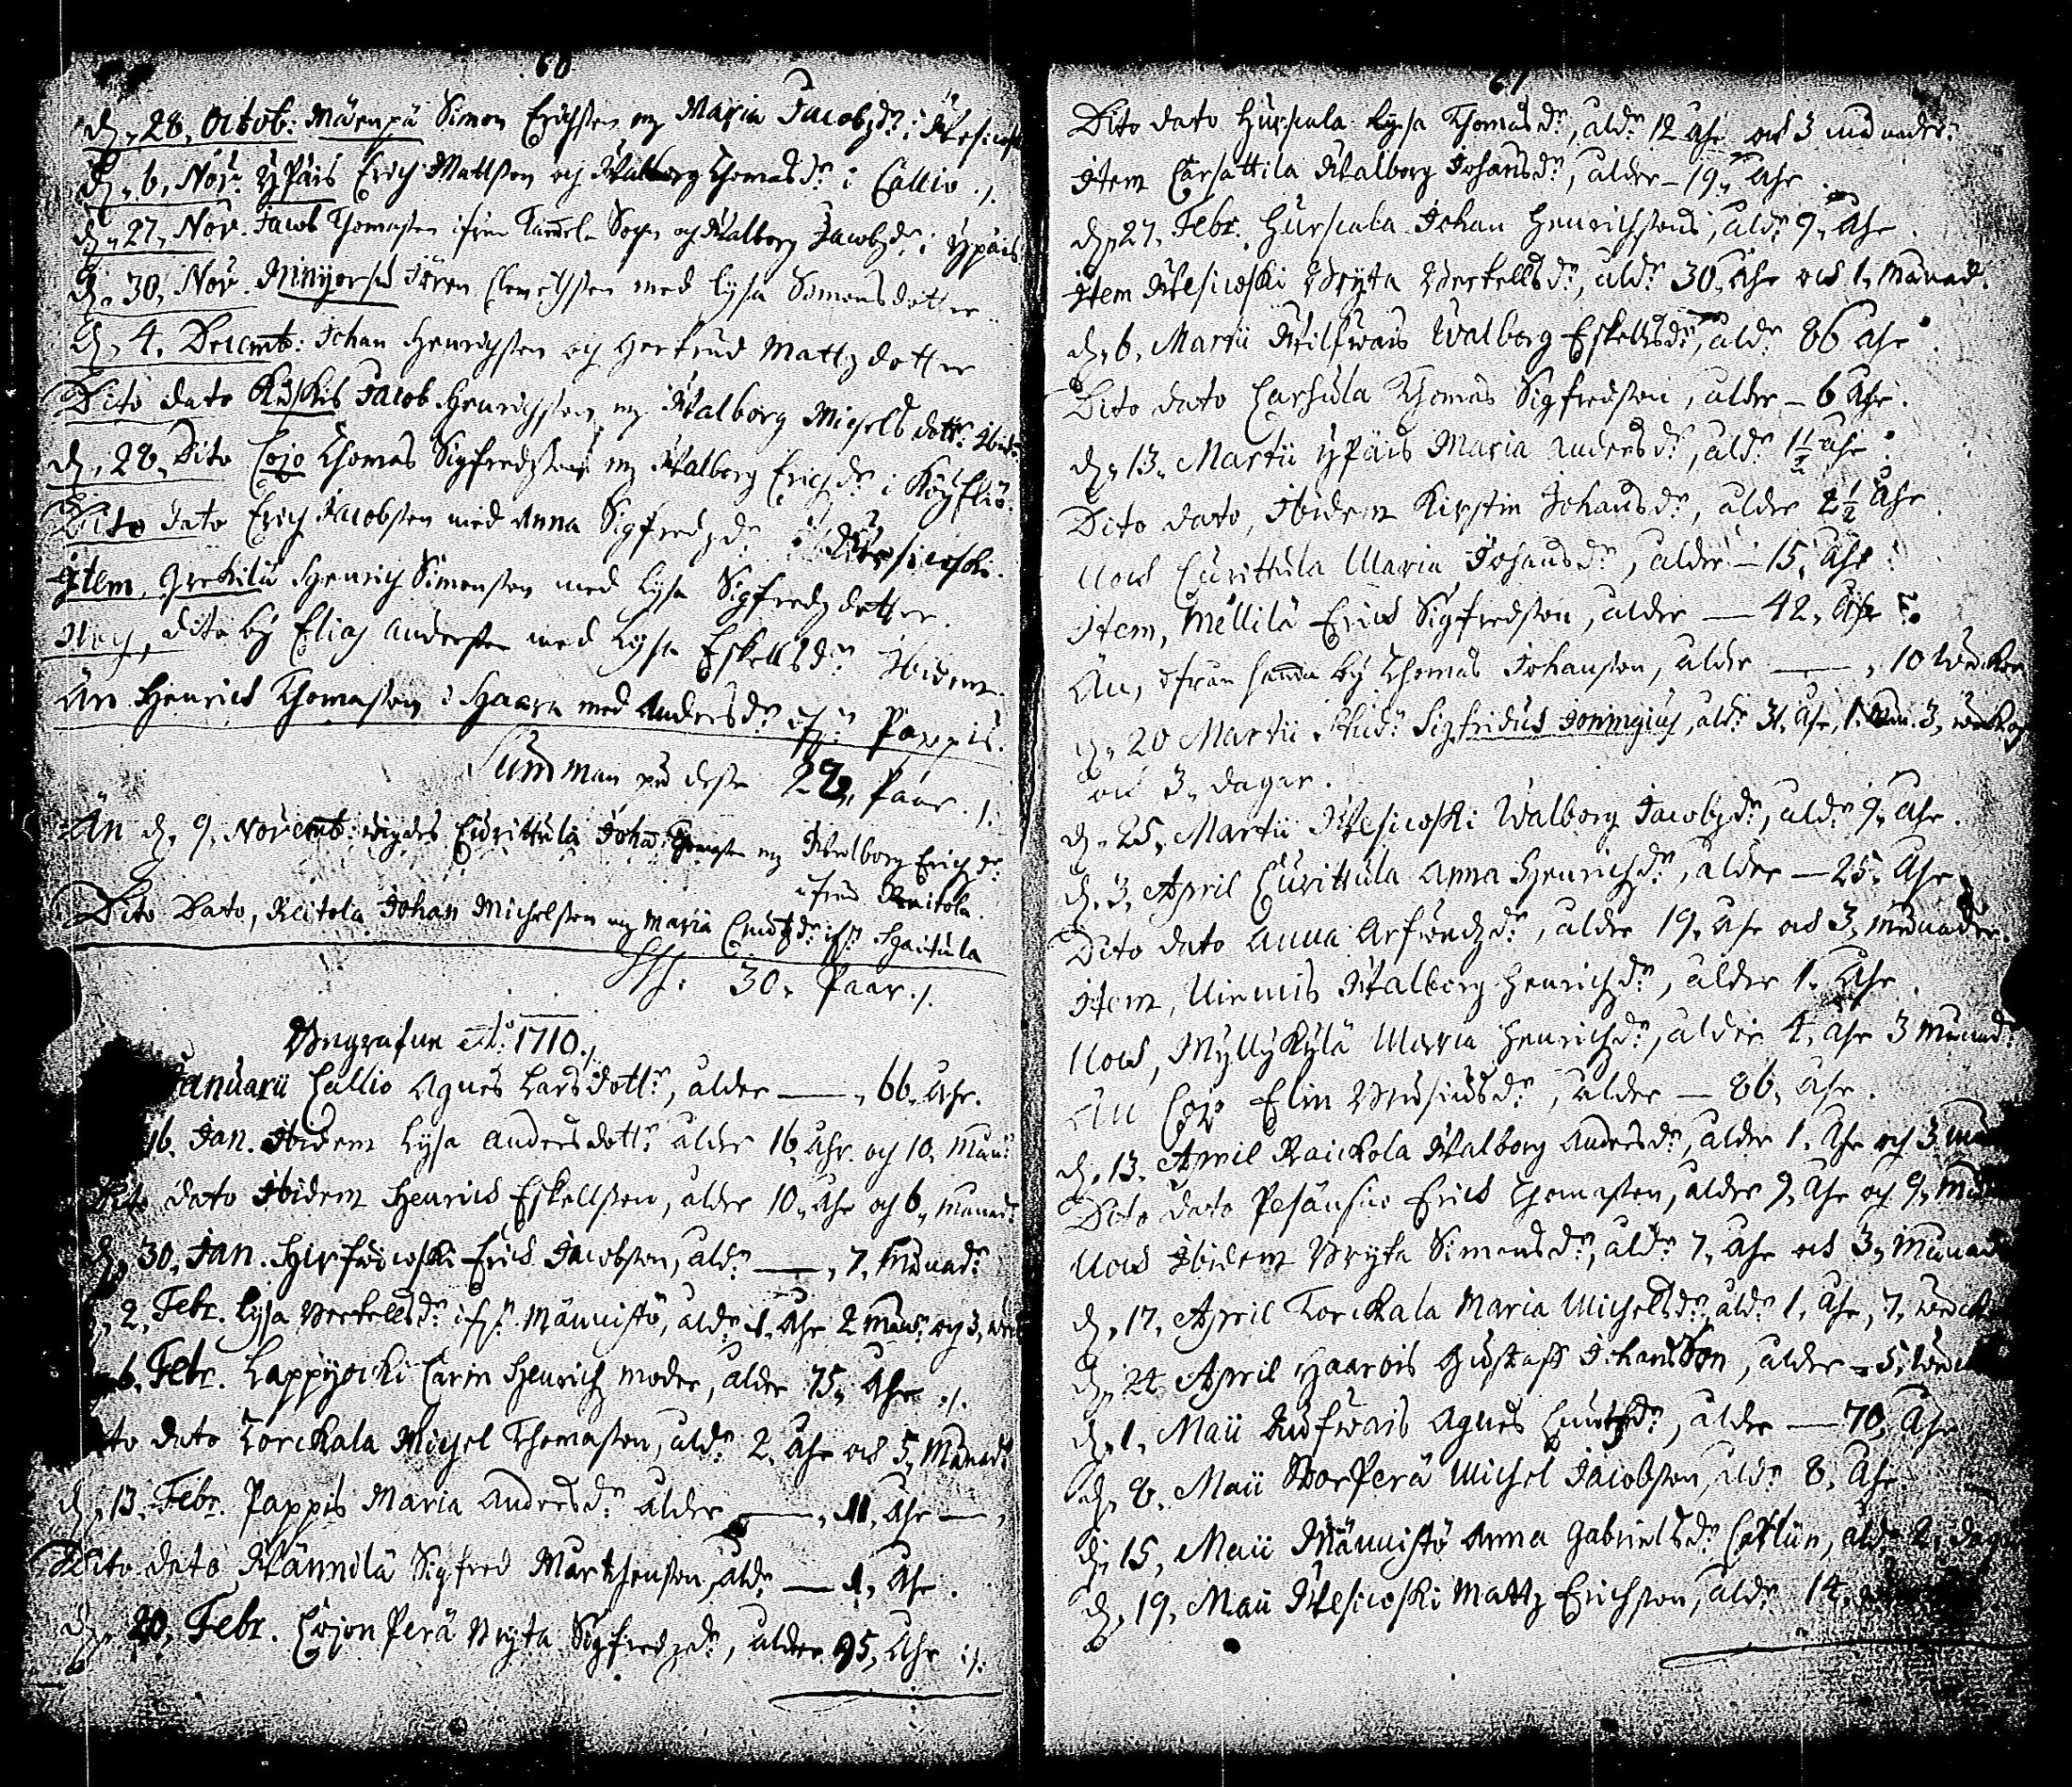 60
d. 28. Octob: Mäenpä Simon Erichsson og Maria Jacobzdr i Wesicoski
d. 6. Novr. Ypäis Erich Mattsson och Walborg Thomasdr i Callio ./.
d. 27. Nov. Jacob Thomasson ifrån Tammela Sogn og Walborg Jacobzdr i Ypäis
d. 30. Nov. Minjorsu Jören Clemetsson med Lysa Simonsdotter
d. 4. Decemb: Johan Henrichsson och Gertrud Mattzdotter
Dito dato Kuskis Jacob Henrichsson og Walborg Michelsdottr Ibid:
d. 28. Dito Cojo Thomas Sigfredsson og Walborg Erichzdr i Köyliö.
Dito dato Erich Jacobsson med Anna Sigfredzdr i Wesicoski.
Item, Henrich Simonsson med Lysa Sigfredzdotter.
Noch, dito by Elias Andersson med Lysa Eskellsdr Ibidem.
Än Henrich Thomasson i Haara med Andersdr if:n Pappis.
Summan på desse 28. Paar ./.
Än d. 9. Novemb: wigdes Curittula Johan Thomasson og Walborg Erichzdr
ifrån Raitola.
Dito Dato, Reitola Johan Michelsson og Maria Cnutzdr if:n Haitula
30. Paar ./.
Begrafne A:o 1710 ./.
Januarii Callio Agnes Larsdottr, ålder — 66. Åhr.
16. Jan. Ibidem Lysa Andersdottr ålder 16. Åhr och 10. Mån:
Dito dato Ibidem Henrich Eskellsson, ålder 10. Åhr och 6. månad:
d. 30. Jan. Hirfwicoski Erich Jacobsson, åldr — 7. Månadr
2. Febr. Lysa Bertellsdr if:n Männistö, åldr 1. Åhr 2 mån. och 3. weck
6. Febr. Lappijocki Carin Henrichz moder, ålder 75. Åhr ./.
Dito dato Torckala Michel Thomasson, åldr 2. Åhr och 5. Månadr
d. 13. Febr. Pappis Maria Andersdr ålder — 11. Åhr —
Dito dato Wännilä Sigfred Marthensson, åldr — 1. Åhr.
d. 20. Febr. Cojon Perä Bryta Sigfredzdr, ålder 95. Åhr ./.
61
Dito dato Hurscala Lysa Thomasdr, åldr 12 Åhr och 3 månader.
Item Carsattila Walborg Johansdr, ålder — 19. Åhr.
d. 27. Febr. Hurscala Johan Henrichssons, åldr 9. Åhr.
Item Wesicoski Bryta Bertellsdr, åldr 30. Åhr och 1. Månad.
d. 6. Martii Wilfwais Walborg Eskellsdr, åldr 86 Åhr.
Dito dato Carhula Thomas Sigfredsson, ålder — 6 Åhr.
d. 13. Martii Ypäis Maria Andersdr, åldr 1½ Åhr.
Dito dato, Ibidem Kirstin Johansdr, ålder 2½ Åhr.
Noch Curittula Maria Johansdr, ålder — 15. Åhr
Item, Mellilä Erich Sigfredsson, ålder — 42. Åhr
Än, ifrån samma by Thomas Johansson, ålder — 10 weckor
d. 20 Martii Stud: Sigfridus Ioningius, åldr 31. Åhr, 1. Mån. 3. weckor
och 3. dagar.
d. 25. Martii Wesicoski Walborg Jacobzdr, åldr 9. Åhr.
d. 3. April Curittula Anna Henrichzdr, ålder — 25. Åhr.
Dito dato Anna Arfwedzdr, ålder 19. Åhr och 3. månader.
Item, Niemis Walborg Henrichzdr, ålder 1. Åhr.
Noch, Myllykylä Maria Henrichzdr, ålder 4. Åhr 3 månad:
Än Cojo Elin Brusiusdr, ålder — 86. Åhr.
d. 13. April Raickola Walborg Andersdr, ålder 1. Åhr och 3. mån
Dito dato Pesänsuo Erich Thomasson, ålder 9. Åhr och 9. må
Noch Ibidem Bryta Simonsdr, åldr 7. Åhr och 3. Månad
d. 17. April Torckala Maria Michellsdr, åldr 1. Åhr, 7. wecko
d. 24 April Haarois Gustaff Johansson, ålder — 5. weck
d. 1. Maii Aufwais Agnes Cnutzdr, ålder — 70. Åhr
d. 8. Maii Storperä Michel Jacobsson, åldr 8. Åhr
d. 15. Maii Männistö Anna Gabrielsdr, åldr 2. dagar
d. 19. Maii Wesicoski Mattz Erichsson, åldr 14.